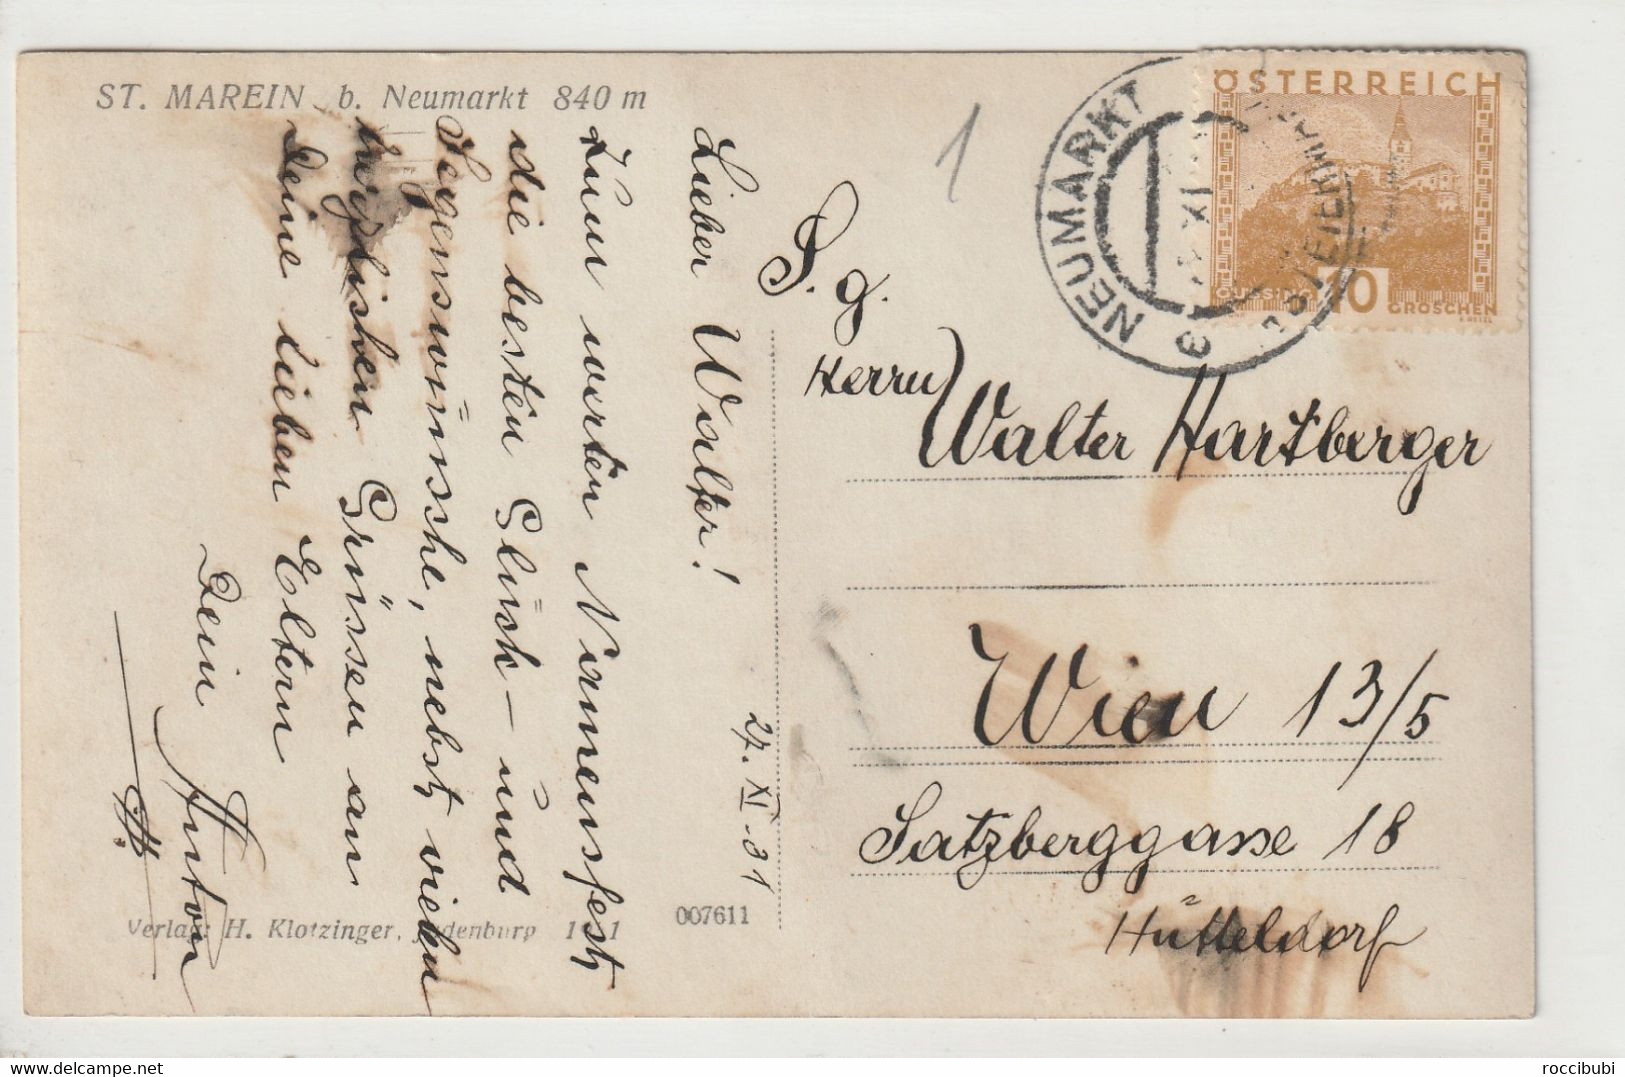 ST. MAREIN b. Neumarkt 840 m
Lieber Walter!
Zum werten Nammensfest
die besten Glück- und
Segenswünsche, nebst vielen
herzlichen Grüssen an
Deine lieben Eltern
Dein Anton
27. XI. 31
Verlag: H. Klotzinger, Judenburg
007611
1
NEUMARKT
XI
ÖSTERREICH
GÜSSING
10
GROSCHEN
S. g.
Herrn
Walter Hartberger
Wien 13/5
Satzberggasse 18
Hütteldorf
roccibubi